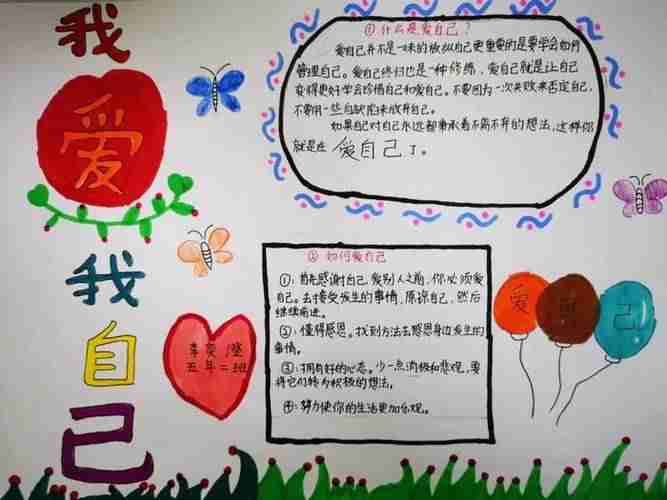 我
爱
我
自
己
①什么是爱自己？
爱自己并不是一味的放纵自己更重要的是要学会如何
管理自己。爱自己终归也是一种修练，爱自己就是让自己
变得更好学会珍惜自己和爱自己。不要因为一次失败来否定自己，
不要用一些自缺陷来放弃自己。
如果自己对自己永远都秉承着不离不弃的想法，这样你
就是在爱自己了。
②如何爱自己
①：首先感谢自己，爱别人之前，你必须爱
自己。去接受发生的事情，原谅自己，然后
继续前进。
②：懂得感恩。找到方法去感恩身边发生的
事情。
③：拥有好的心态。少一点消极和悲观，要
将它们转为积极的想法。
④：努力使你的生活更加乐观。
李奕
五年二班
爱
自
己